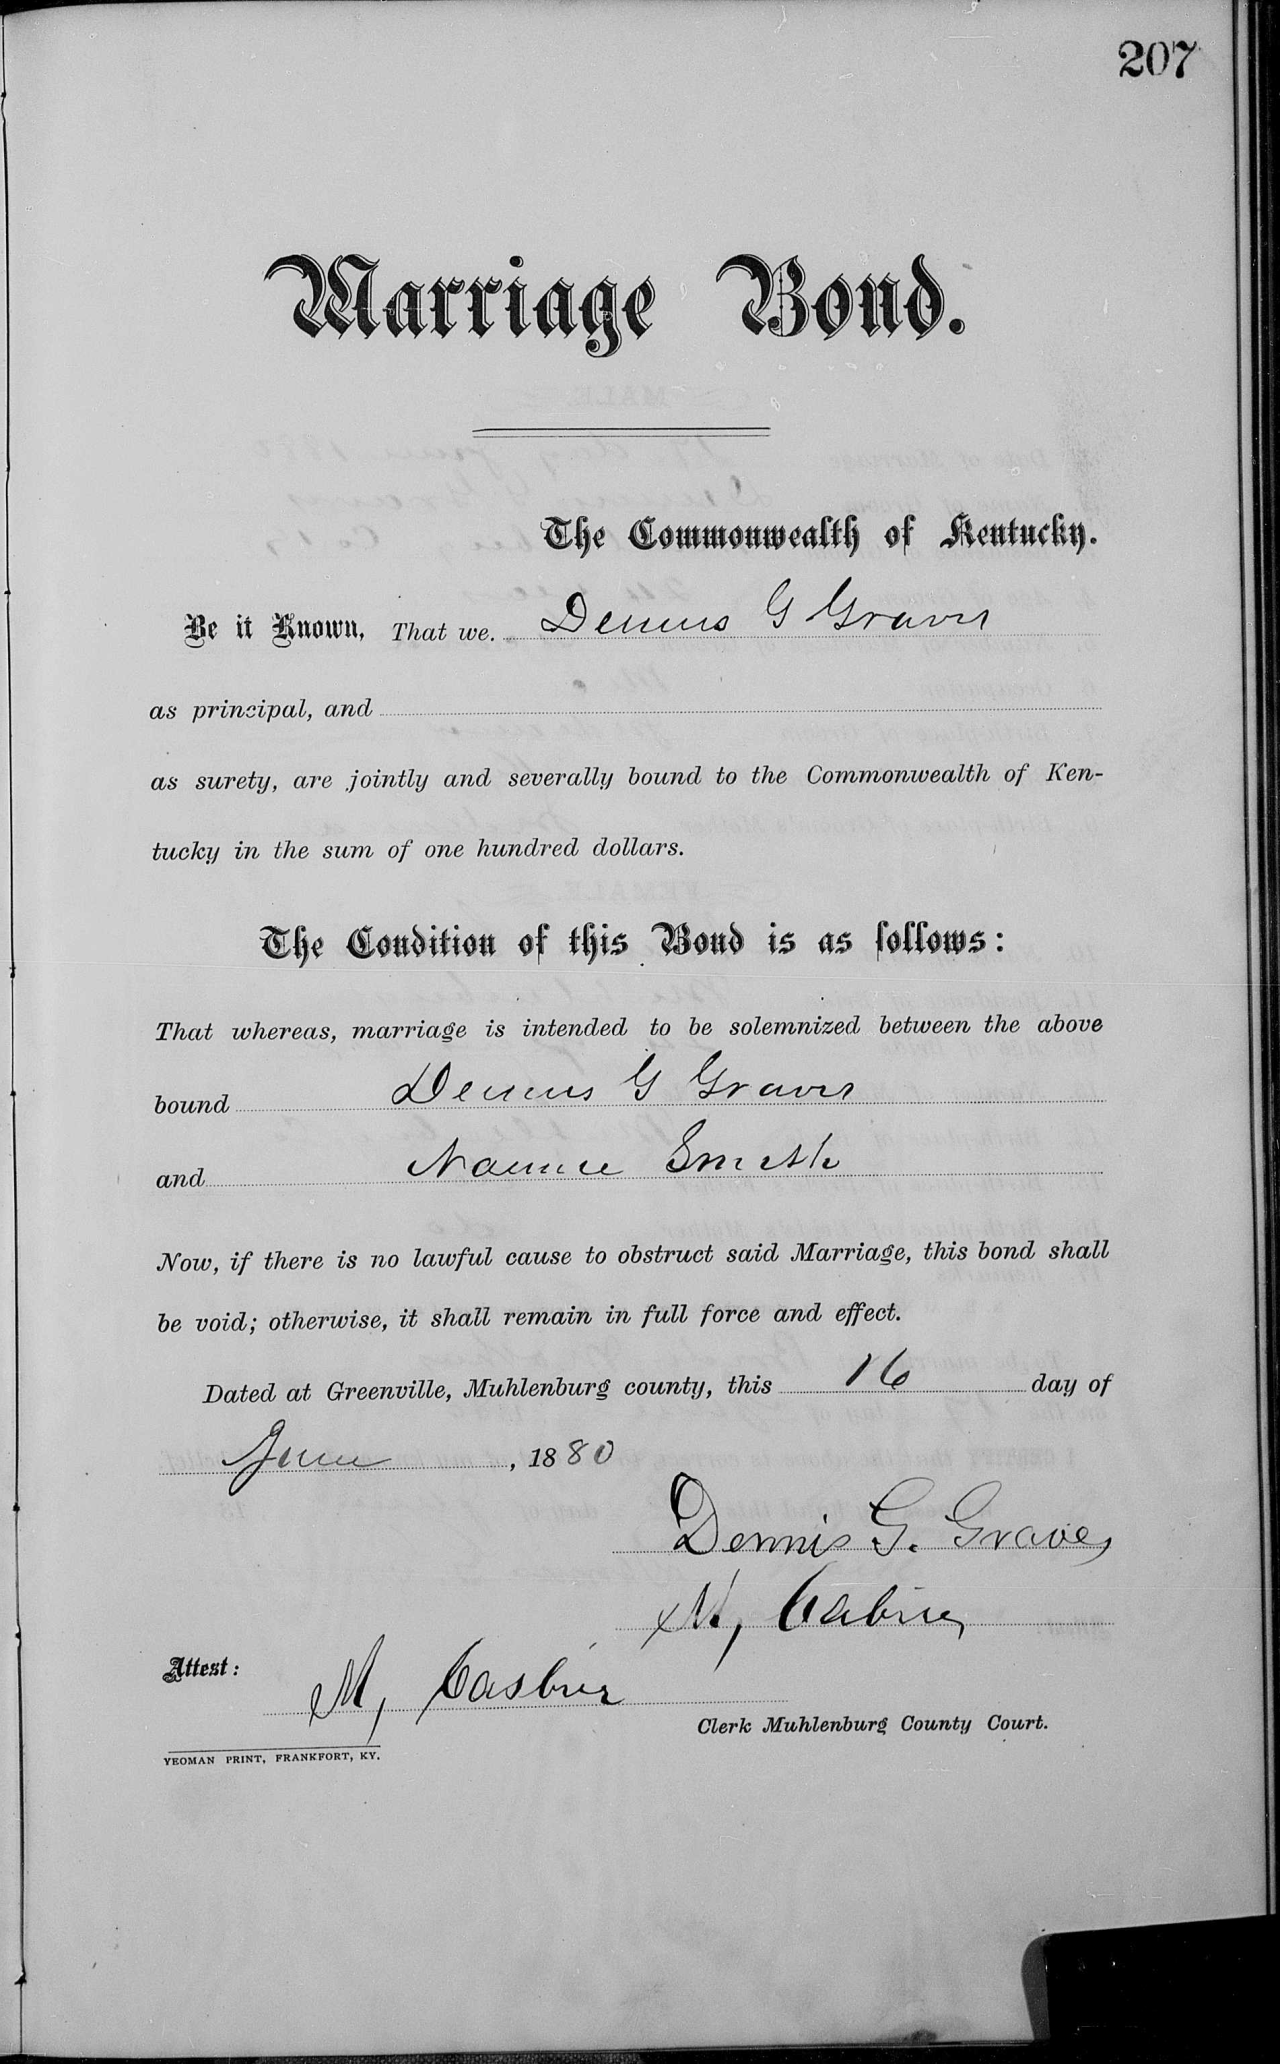 207
Marriage Bond.
The Commonwealth of Kentucky.
Be it Known, That we. Dennis G Graves
as principal, and
as surety, are jointly and severally bound to the Commonwealth of Ken-
tucky in the sum of one hundred dollars.
The Condition of this Bond is as follows:
That whereas, marriage is intended to be solemnized between the above
bound Dennis G Graves
and Nannie Smith
Now, if there is no lawful cause to obstruct said Marriage, this bond shall
be void; otherwise, it shall remain in full force and effect.
Dated at Greenville, Muhlenburg county, this 16 day of
June, 1880
Dennis G. Graves
M,
Attest:
M,
Clerk Muhlenburg County Court.
YEOMAN PRINT, FRANKFORT, KY.